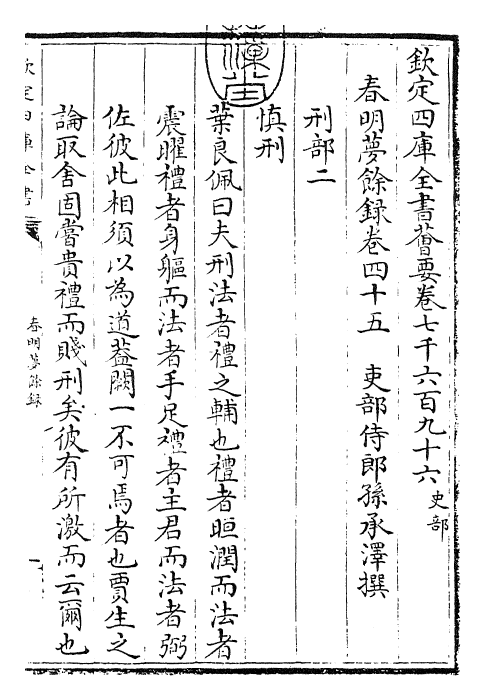 欽定四庫全書薈要卷七千六百九十六吏部
春明夢餘録卷四十五　吏部侍郎孫承澤撰
刑部二
慎刑
葉良佩曰夫刑法者禮之輔也禮者晅潤而法者
震曜禮者身軀而法者手足禮者主君而法者弼
佐彼此相須以為道葢闕一不可焉者也賈生之
論取舍固嘗貴禮而賤刑矣彼有所激而云爾也
欽定四庫全書
春明夢餘録
一